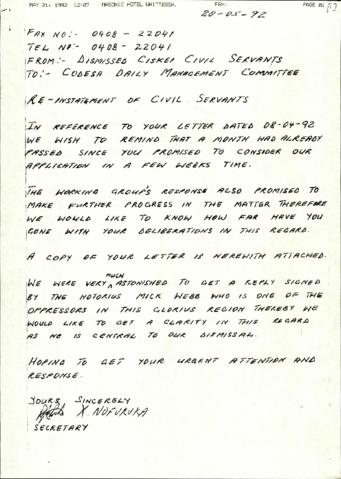 MAY 21, 1992 12:07 MASONIC HOTEL WHITTESEA. FAX: PAGE 01
20-05-92
FAX NO:- 0408 - 22041
TEL NO- 0408-22041
FROM:- DISMISSED CISKEI CIVIL SERVANTS
TO:- CODESA DAILY MANAGEMENT COMMITTEE
RE-INSTATEMENT OF CIVIL SERVANTS
IN REFERENCE TO YOUR LETTER DATED 08-04-92
WE WISH TO REMIND THAT A MONTH HAD ALREADY
PASSED SINCE YOU PROMISED TO CONSIDER OUR
APPLICATION IN A FEW WEEKS TIME.
THE WORKING GROUP'S RESPONSE ALSO PROMISED TO
MAKE FURTHER PROGRESS IN THE MATTER THEREFORE
WE WOULD LIKE TO KNOW HOW FAR HAVE YOU
GONE WITH YOUR DELIBERATIONS IN THIS REGARD.
A COPY OF YOUR LETTER IS HEREWITH ATTACHED.
WE WERE VERY MUCH ASTONISHED TO GET A REPLY SIGNED
BY THE NOTORIUS MICK WEBB WHO IS ONE OF THE
OPPRESSORS IN THIS GLORIUS REGION THEREBY WE
WOULD LIKE TO GET A CLARITY IN THIS REGARD
AS HE IS CENTRAL TO OUR DISMISSAL.
HOPING TO GET YOUR URGENT ATTENTION AND
RESPONSE.
YOURS SINCERELY
X NOFURUKA
SECRETARY